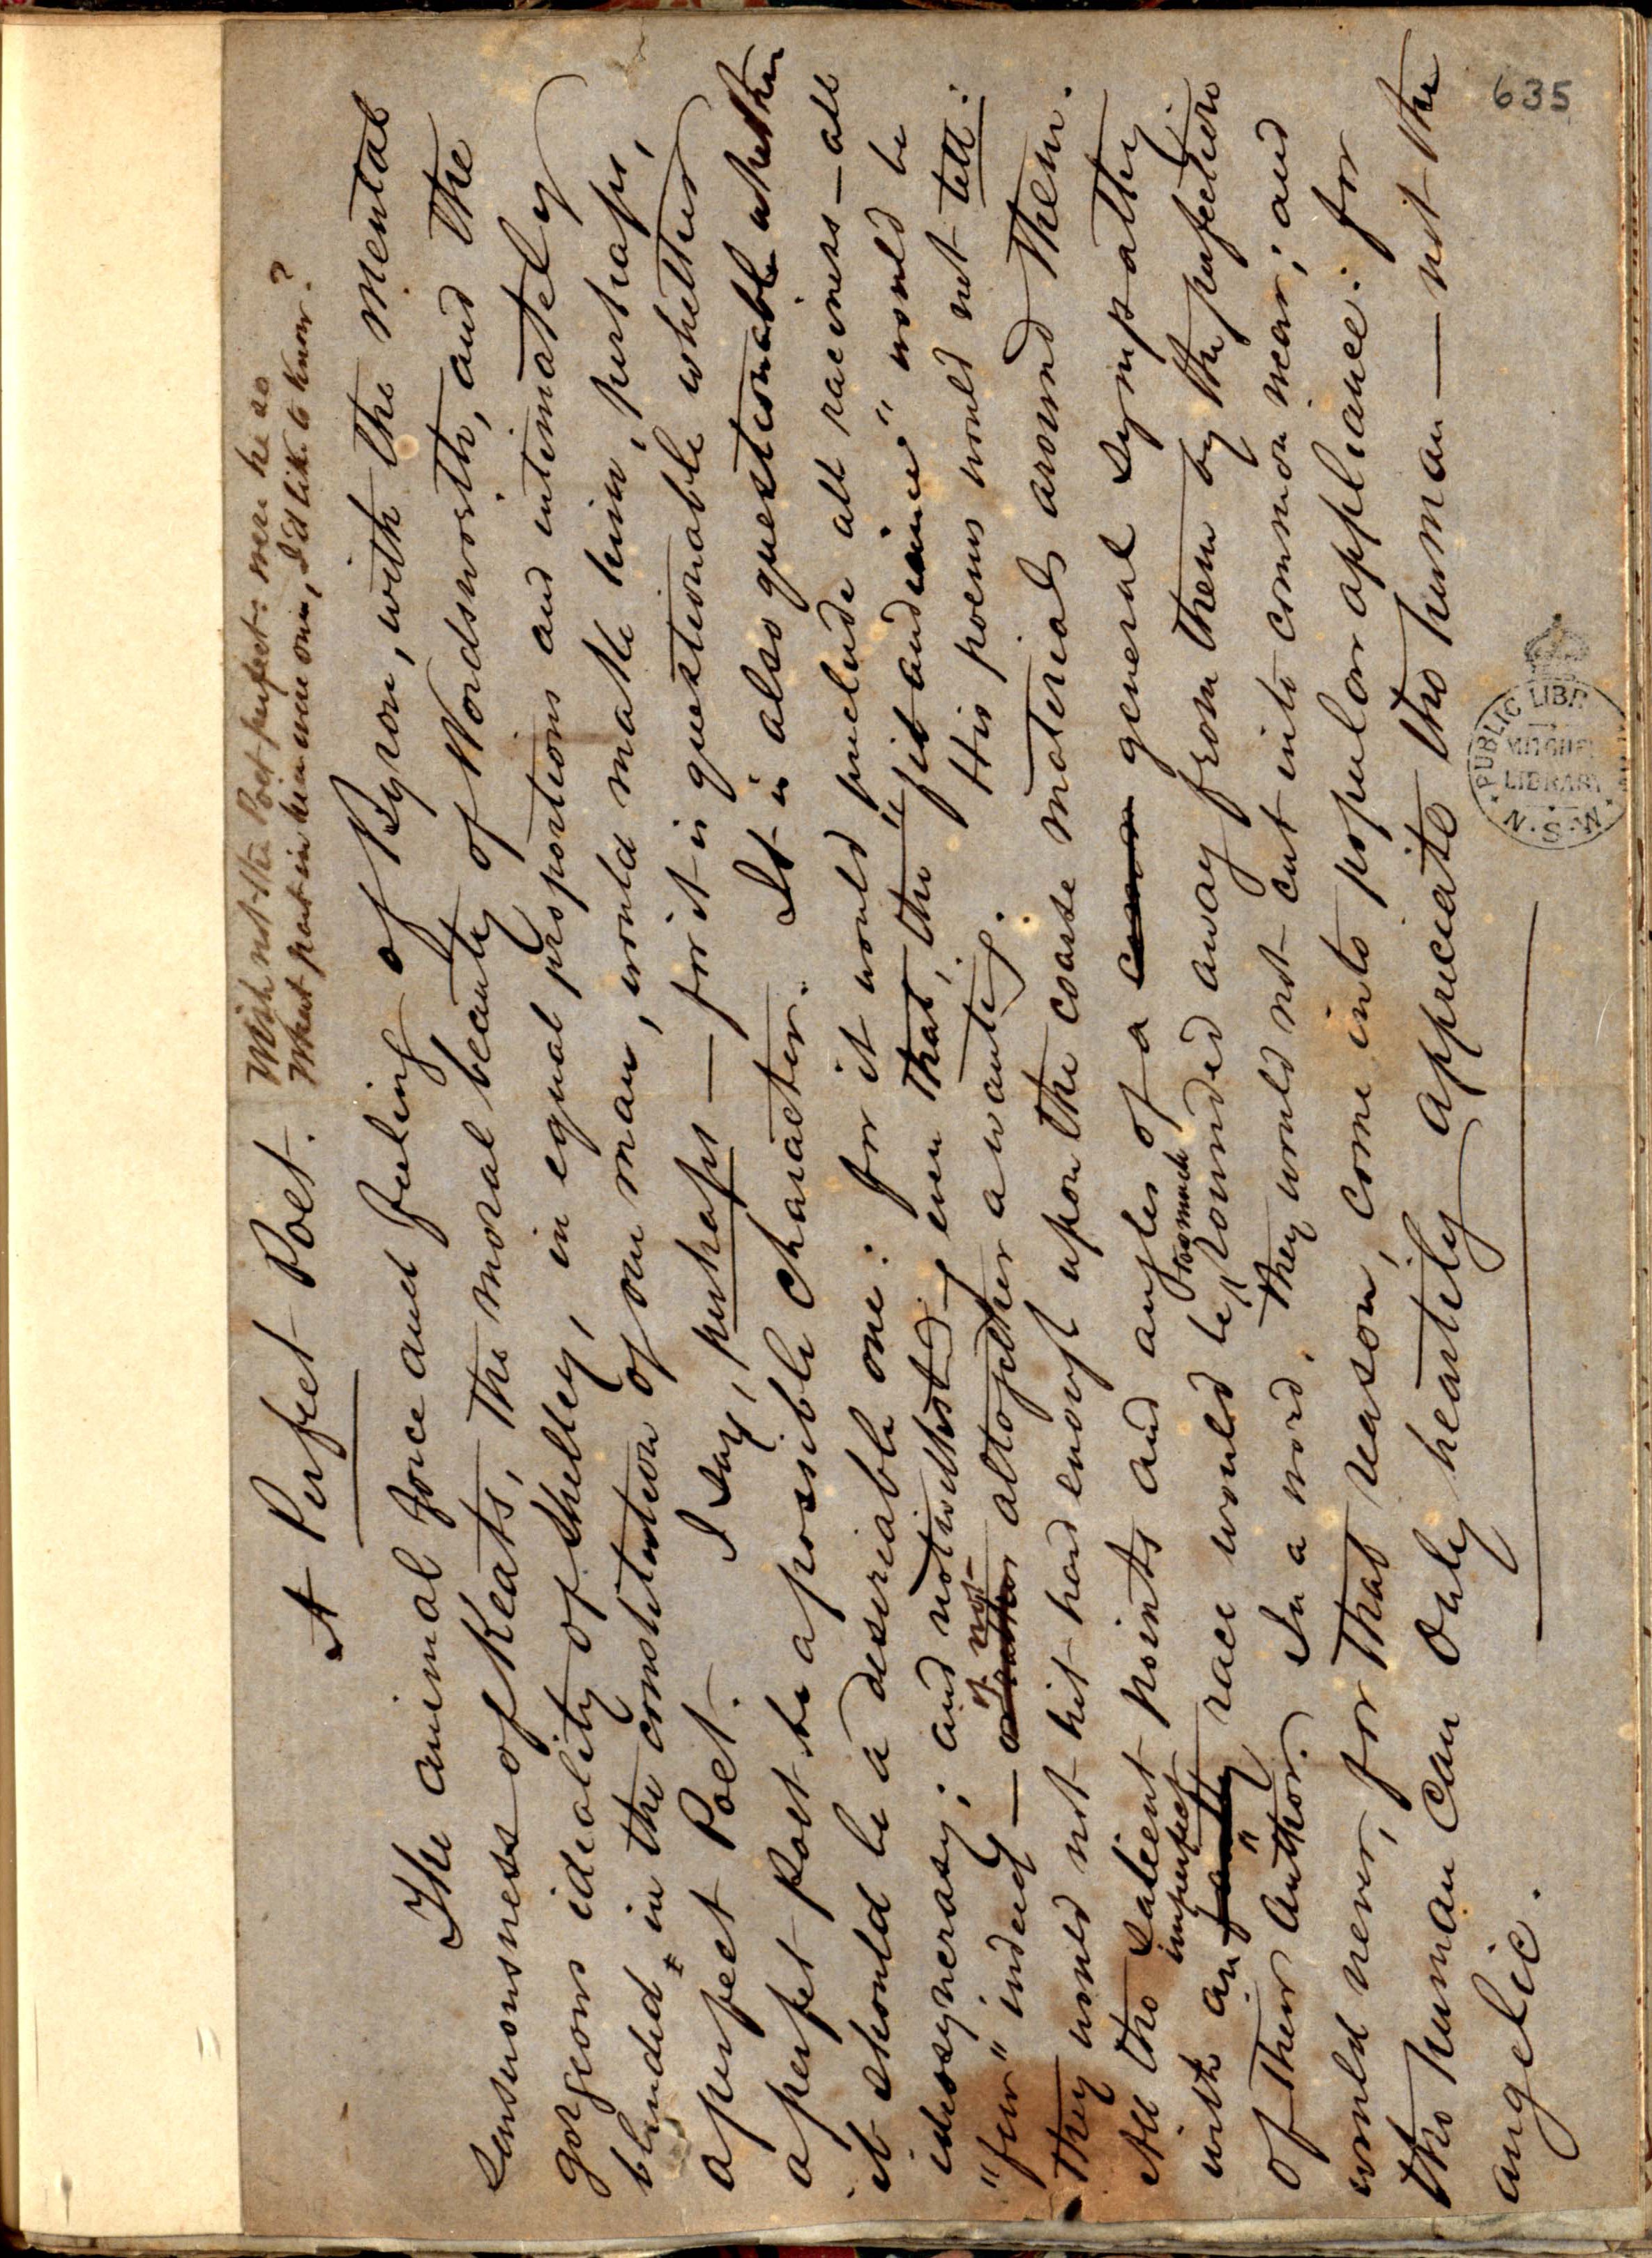 A Perfect Poet.
Wish not the Poet perfect: were he so
What part in him were our, I'd like to know?
The animal force and feeling of Byron, with the mental
sensuousness of Keats, the moral beauty of Wordsworth, and the
gorgeous ideality of Shelley, in equal proportions and intimately
blended, in the constitution of one man, would make him, perhaps,
a perfect Poet. I say, perhaps — for it is questionable whether
a perfect Poet be a possible character. It is also questionable whether
it should be a desireable one: for it would preclude all raciness — all
ideosyncrasy; and notwithstg even that, tho "fit audience" would be
"few" indeed — a rather if not altogether awanting. His poems would not tell:
they would not hit hard enough upon the coarse materials around them.
All the salient points and angles of a general sympathy
with an faulty imperfect race would be "too much rounded away from them by the perfection
of their Author." In a word, they would not cut into common wear; and
would never, for that reason, come into popular appliance: for
the human can only heartily appreciate the human — not the
angelic.
635
PUBLIC LIBR
MITCHEL
LIBRARY
N.S.W.